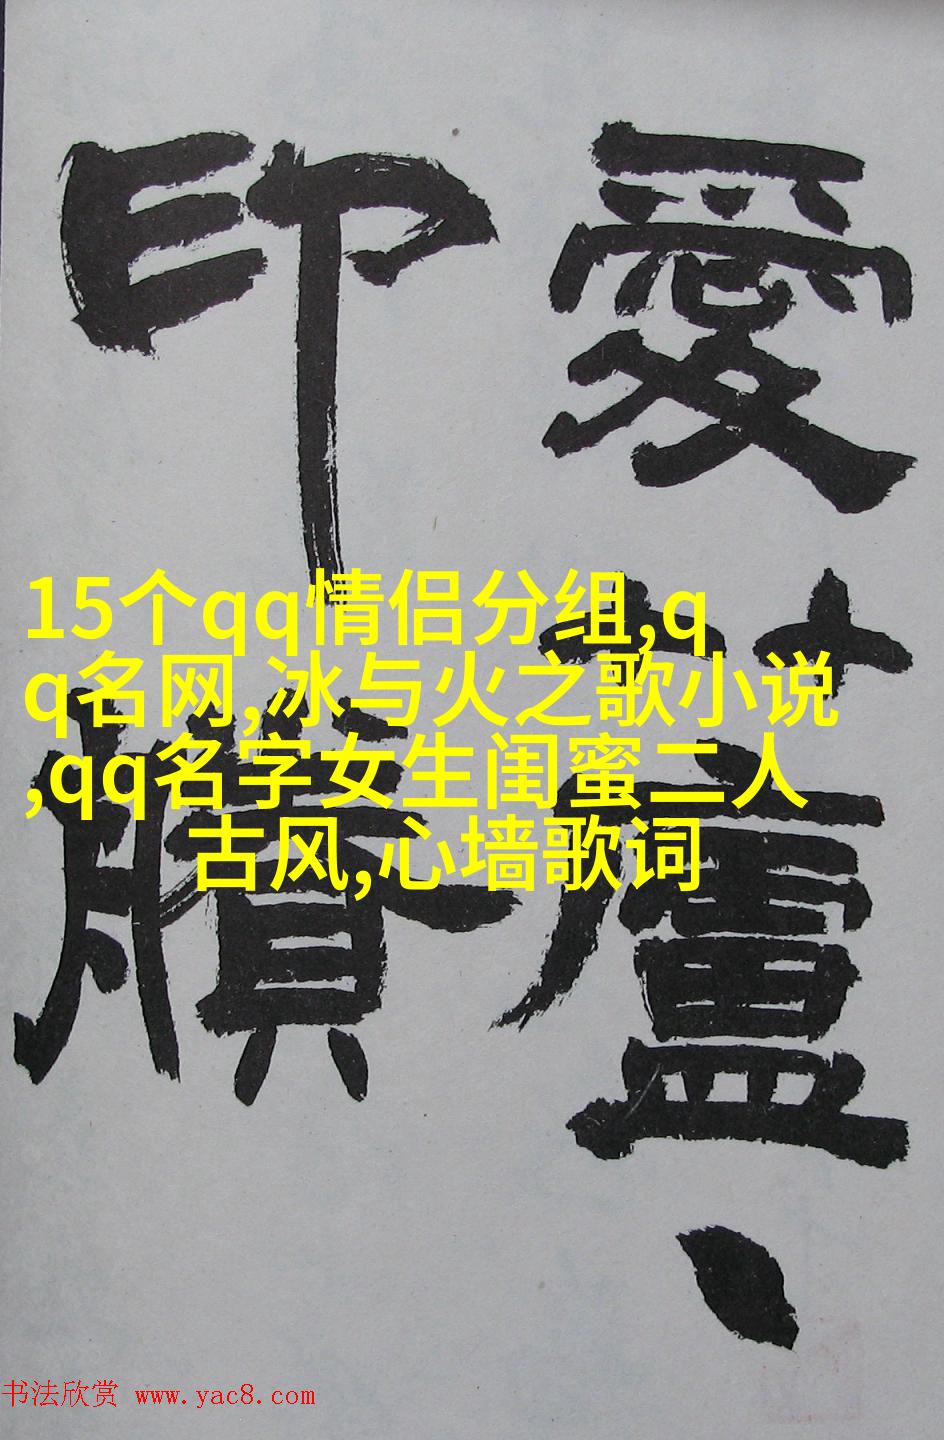 愛蘆、
印賸
15个qq情侣分组,q
q名网,冰与火之歌小说
,qq名字女生闺蜜二人
古风,心墙歌词
书法欣赏 www.yac8.com